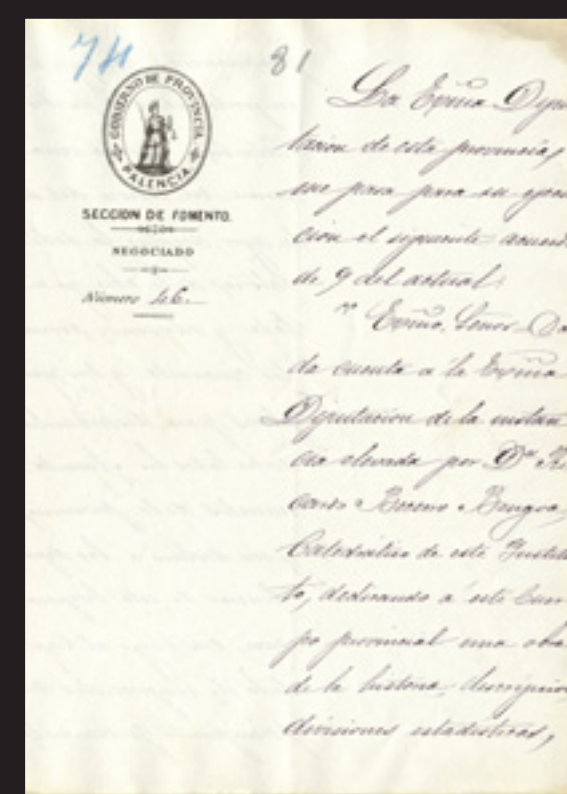 74
81
GOBIERNO DE PROVINCIA
PALENCIA
SECCION DE FOMENTO.
NEGOCIADO
Número 46.
La Exma Dipu
tacion de esta provincia,
me pasa para su ejecu
cion el siguiente acuerd
de 9 del actual:
" Exmo. Señor = Da
da cuenta a la Exma
Diputacion de la instan
cia elevada por Dn Ri
cardo Becerro Bengoa,
Catedrático de este Institu
to, dedicando a este Cuer
po provincial una obra
de la historia, descripcion,
divisiones estadisticas,